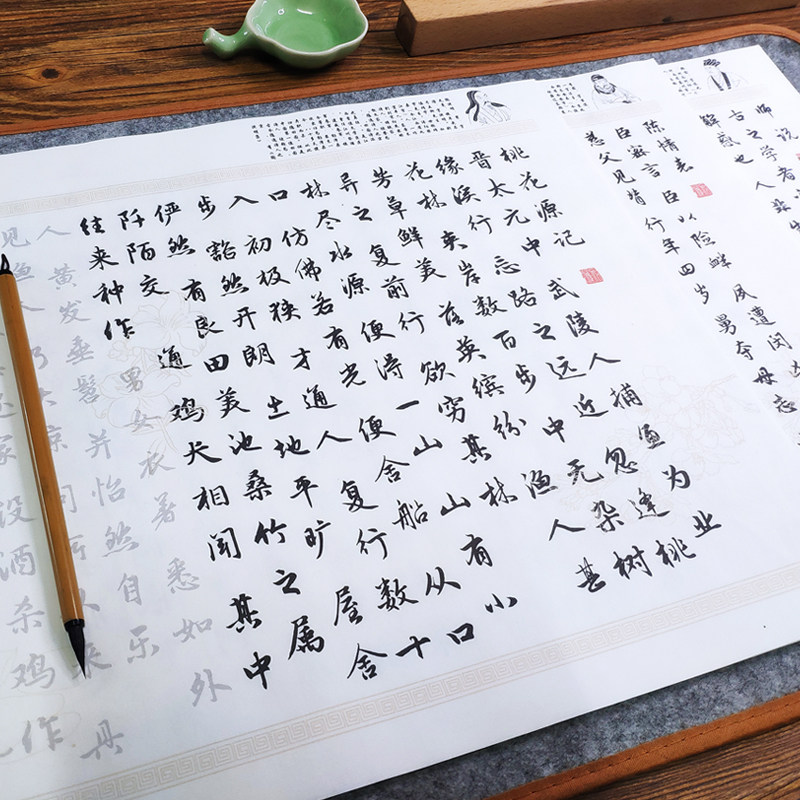 师说
古之学者
解惑也人非生
陈情表
臣密言臣以险衅夙遭闵凶
慈父见背行年四岁舅夺母志
桃花源记
晋太元中武陵人捕鱼为业
缘溪行忘路之远近忽逢桃
花林夹岸数百步中无杂树
芳草鲜美落英缤纷渔人甚
异之复前行欲穷其林
林尽水源便得一山山有小
口仿佛若有光便舍船从口
入初极狭才通人复行数十
步豁然开朗土地平旷屋舍
俨然有良田美池桑竹之属
阡陌交通鸡犬相闻其中
往来种作男女衣着悉如外
人黄发垂髫并怡然自乐
见渔人乃大惊问所从来
还家设酒杀鸡作